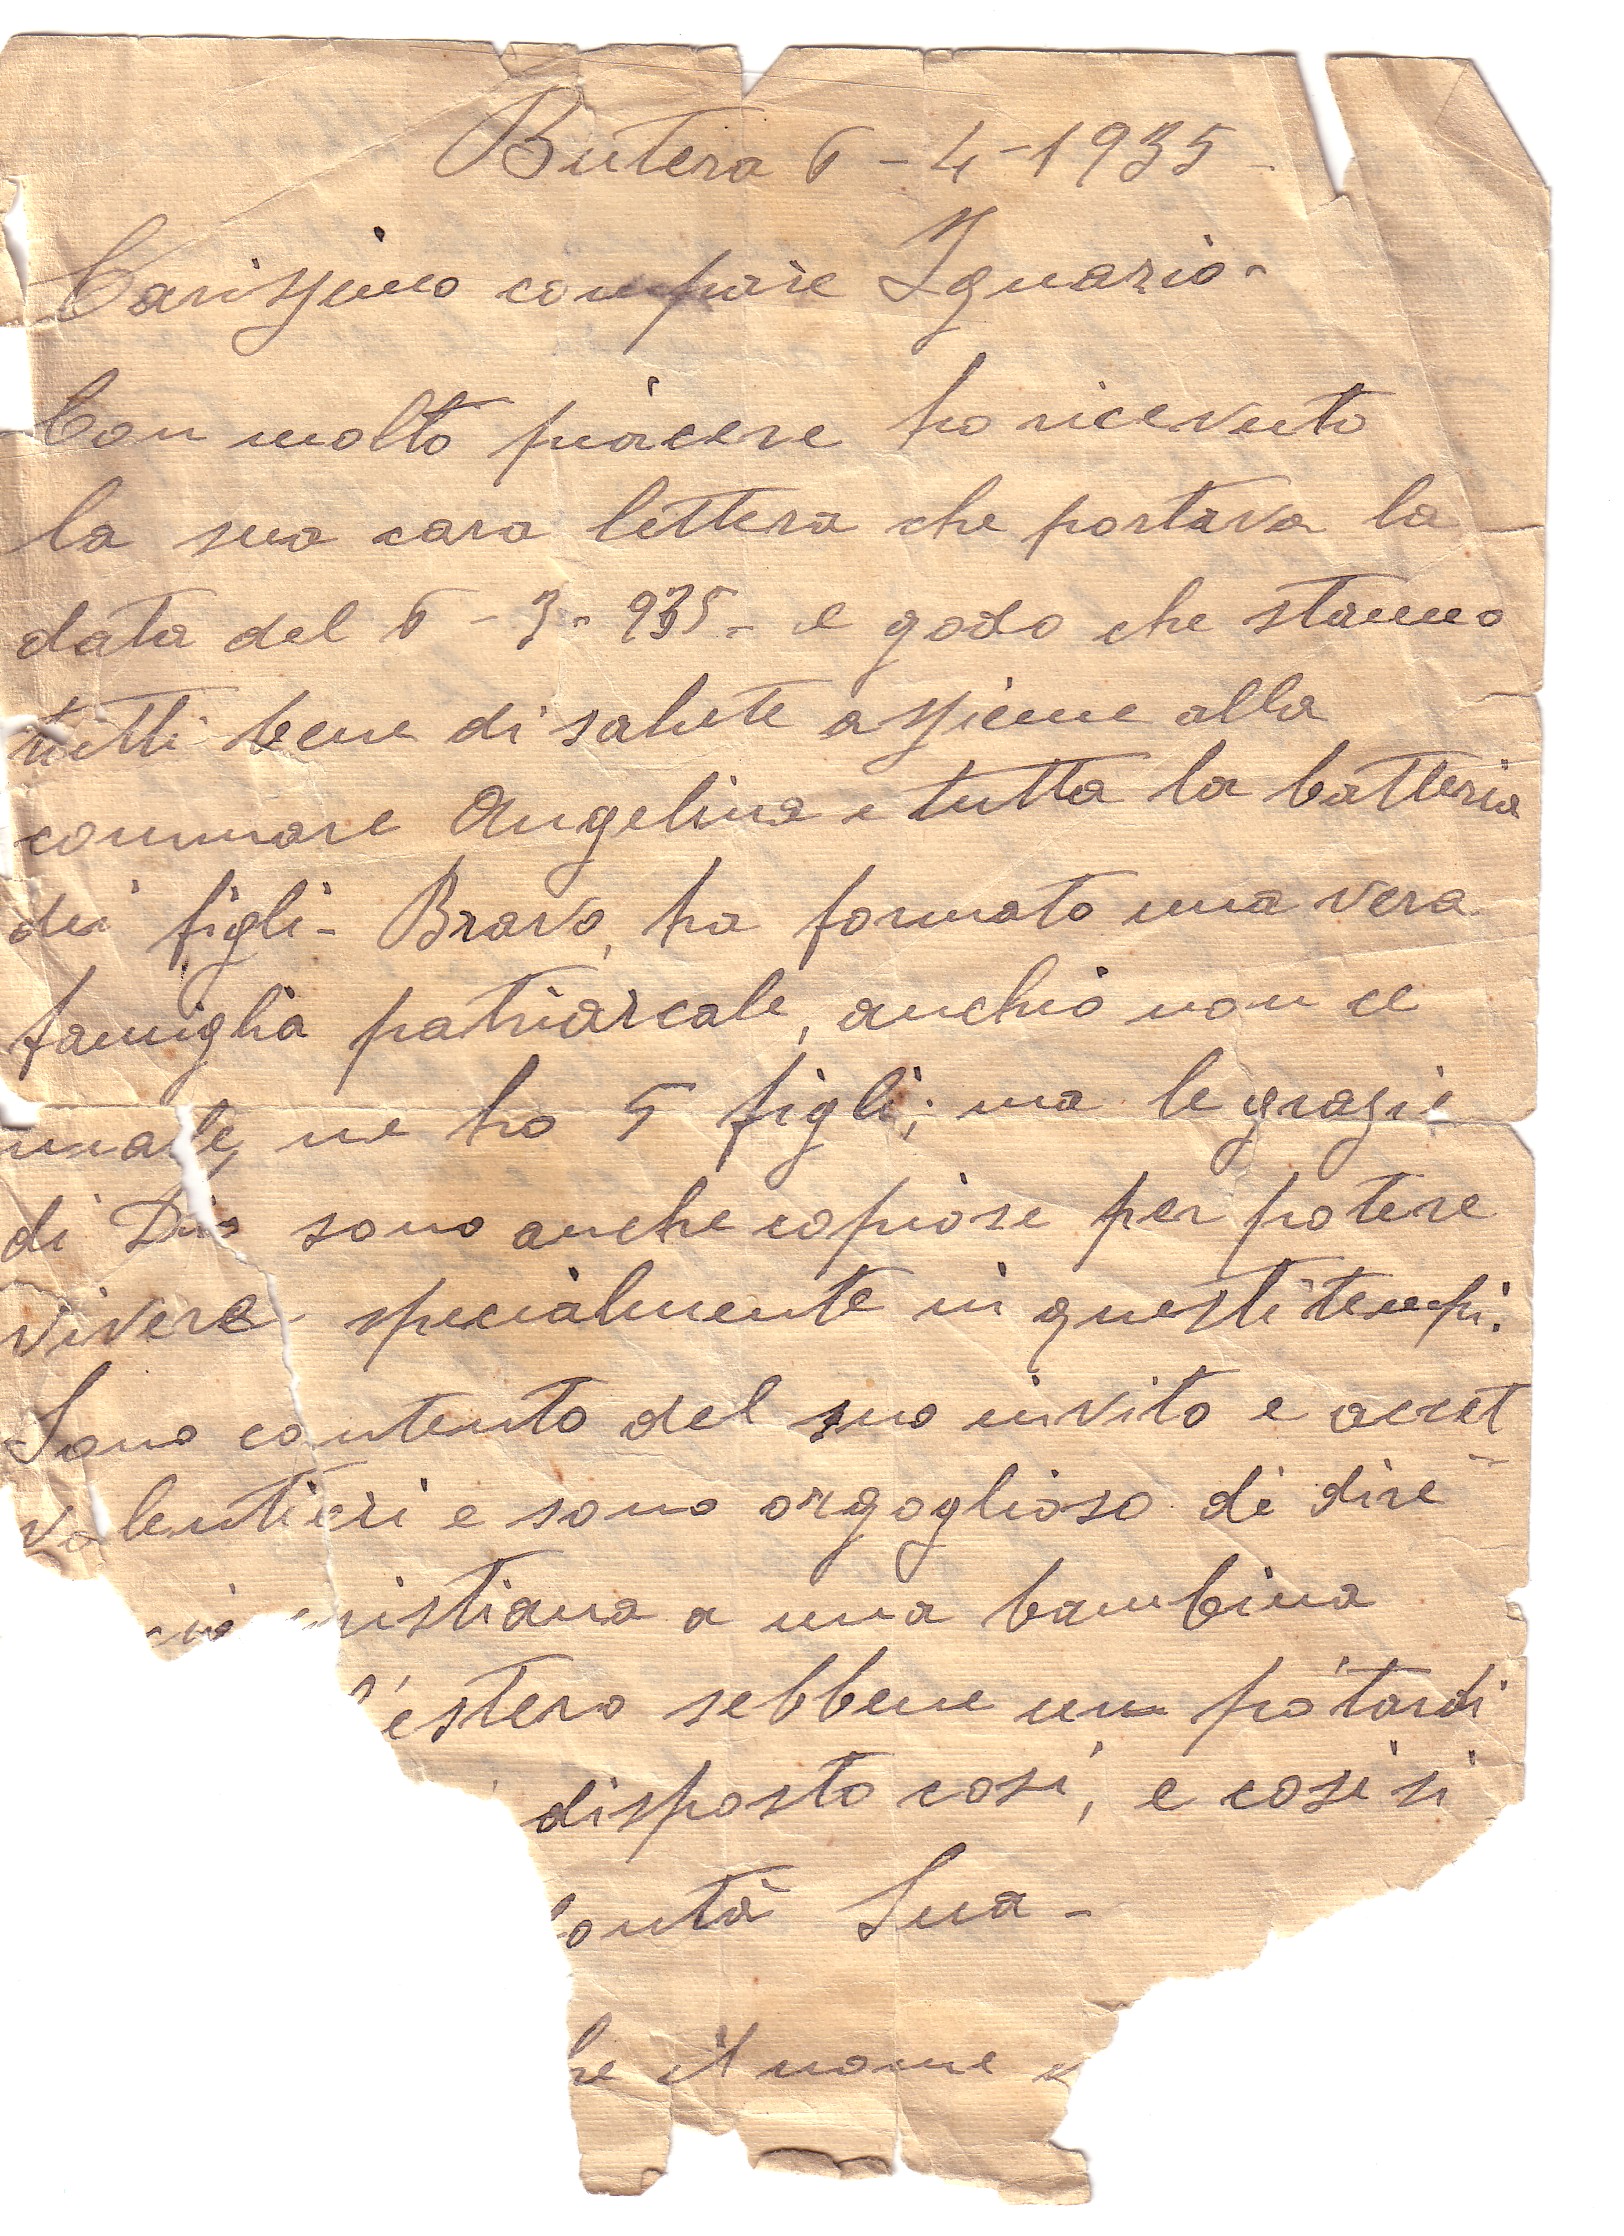 Butera 6-4-1935-
Carissimo compare Ignazio-
Con molto piacere ho ricevuto
la sua cara lettera che portava la
data del 6-3-935- e godo che stanno
tutti bene di salute assieme alla
commare Angelina e tutta la batteria
dei figli- Bravo, ha formato una vera
famiglia patriarcale, anchio non ce
male, ne ho 5 figli; ma le grazie
di Dio sono anche copiose per potere
vivere specialmente in questi tempi.
Sono contento del suo invito e accet
volentieri e sono orgoglioso di dire
ristiana a una bambina
l'estero sebbene un po' tardi
disposto cosi, e cosi si
ontà Sua-
he il nome